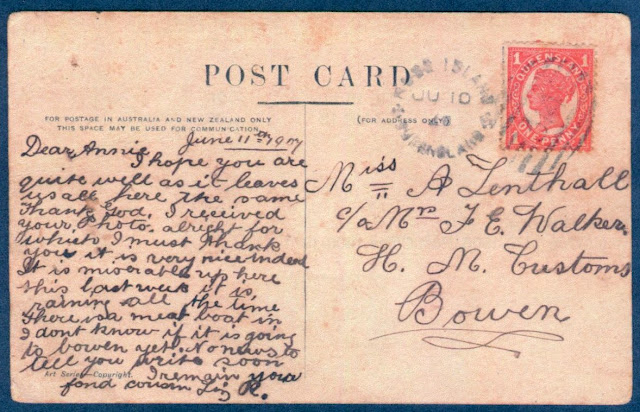 POST CARD
FOR POSTAGE IN AUSTRALIA AND NEW ZEALAND ONLY
THIS SPACE MAY BE USED FOR COMMUNICATION.
(FOR ADDRESS ONLY.)
ISLAND
JU 10
QUEENSLAND
1 QUEENSLAND 1
ONE PENNY
June 11th 1907
Dear Annie
I hope you are
quite well as it leaves
us all here the same
thank God. I received
your Photo. alright for
which I must thank
you it is very nice indeed
It is miserable up here
this last week it is
raining all the time
there is a meat boat in
I dont know if it is going
to bowen yet. No news to
tell you write soon
I remain your
fond cousin Liz R.
Art Series—Copyright.
Miss A Tenthall
c/o Mrs F E. Walker
H. M. Customs
Bowen